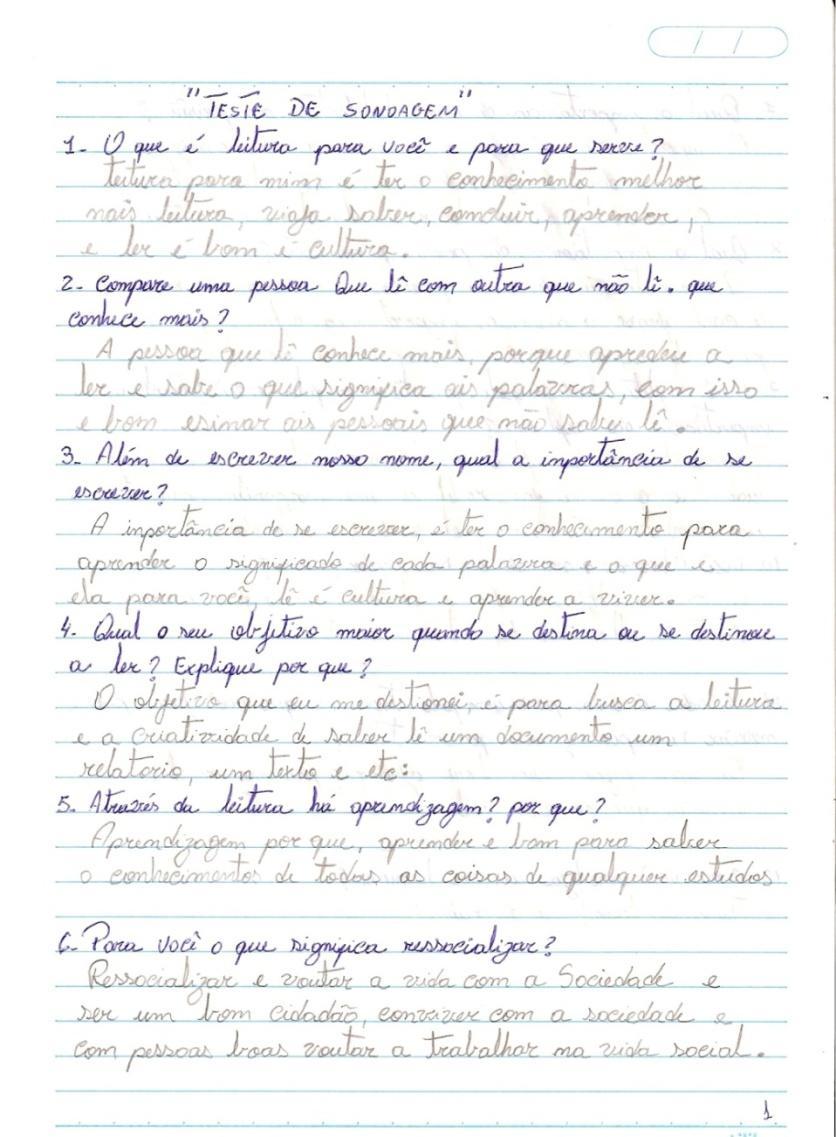 / /
"TESTE DE SONDAGEM"
1- O que é leitura para você e para que serve?
Leitura para mim é ter o conhecimento melhor
mais leitura, viaja saber, comcluir, aprender,
e ler é bom é cultura.
2- Compare uma pessoa Que lê com outra que não lê. que
conhece mais?
A pessoa que lê conhece mais, porque apredeu a
ler e sabe o que significa ais palavras, com isso
e bom esinar ais pessoais que não sabe lê.
3- Além de escrever nosso nome, qual a importância de se
escrever?
A inportância de se escrever, é ter o conhecimento para
aprender o significado de cada palavra e o que e
ela para você, lê é cultura e aprender a viver.
4. Qual o seu objetivo maior quando se destina ou se destinou
a ler? Explique por que?
O objetivo que eu me destionei, é para busca a leitura
e a criatividade de saber lê um documento, um
relatorio, um texto e etc:
5. Através da leitura há aprendizagem? por que?
Aprendizagem por que, aprender e bom para saber
o conhecimentos de todas as coisas de qualquer estudos
6- Para você o que significa ressocializar?
Ressocializar e voutar a vida com a Sociedade e
ser um bom cidadão, conviver com a sociedade e
com pessoas boas voutar a trabalhar na vida social.
1